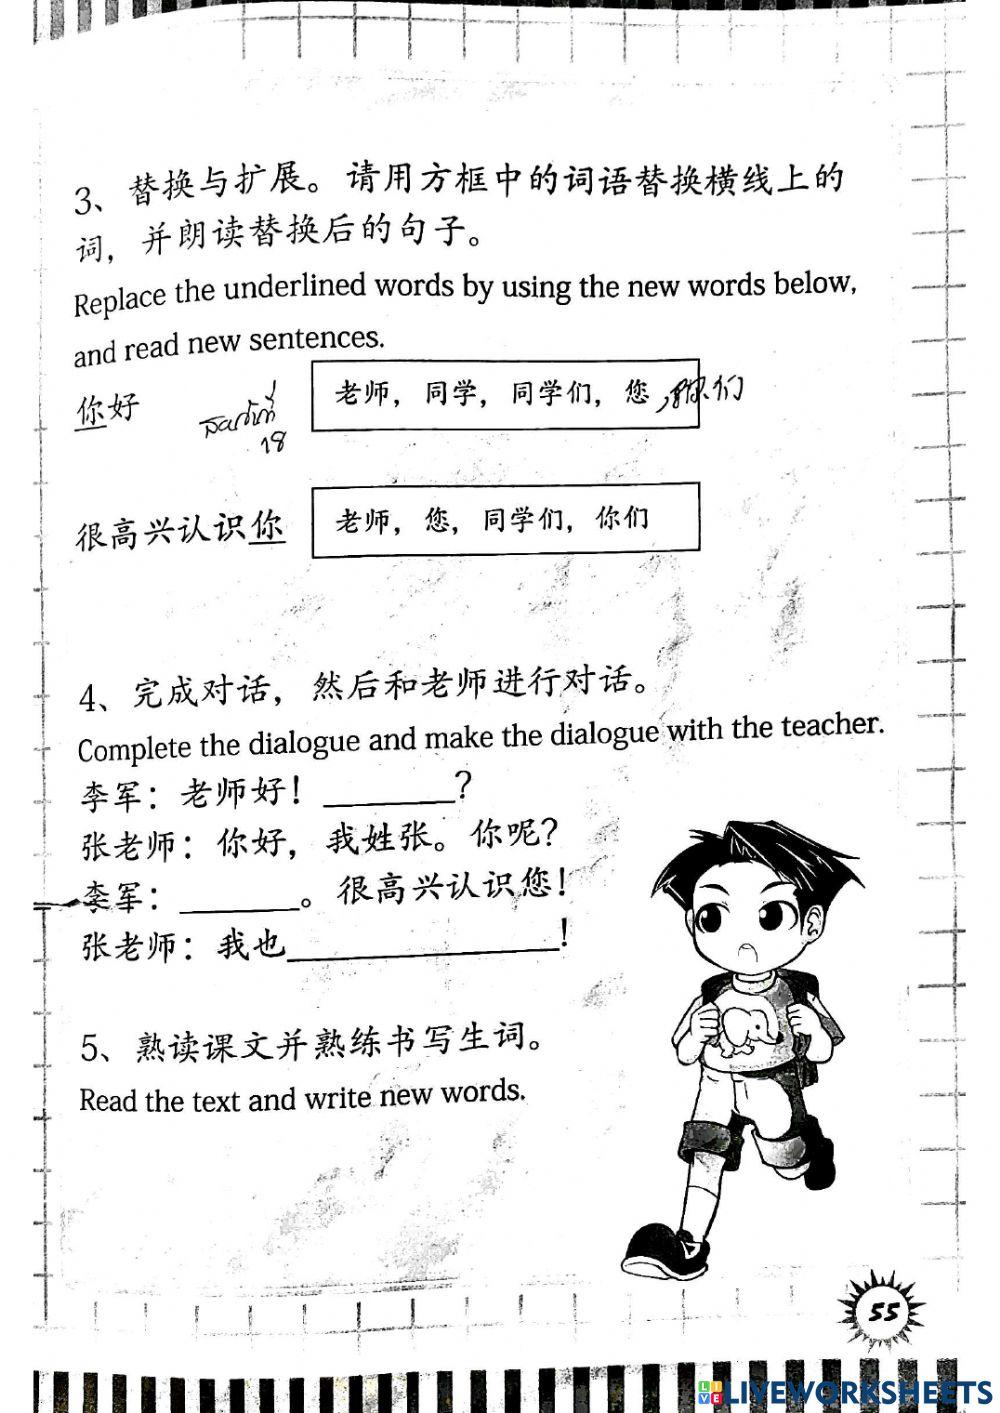 3、替换与扩展。请用方框中的词语替换横线上的
词，并朗读替换后的句子。
Replace the underlined words by using the new words below,
and read new sentences.
你好
老师，同学，同学们，您，你们
18
很高兴认识你
老师，您，同学们，你们
4、完成对话，然后和老师进行对话。
Complete the dialogue and make the dialogue with the teacher.
李军：老师好！________?
张老师：你好，我姓张。你呢?
李军：_______。很高兴认识您！
张老师：我也________________!
5、熟读课文并熟练书写生词。
Read the text and write new words.
55
LIVE LIVEWORKSHEETS